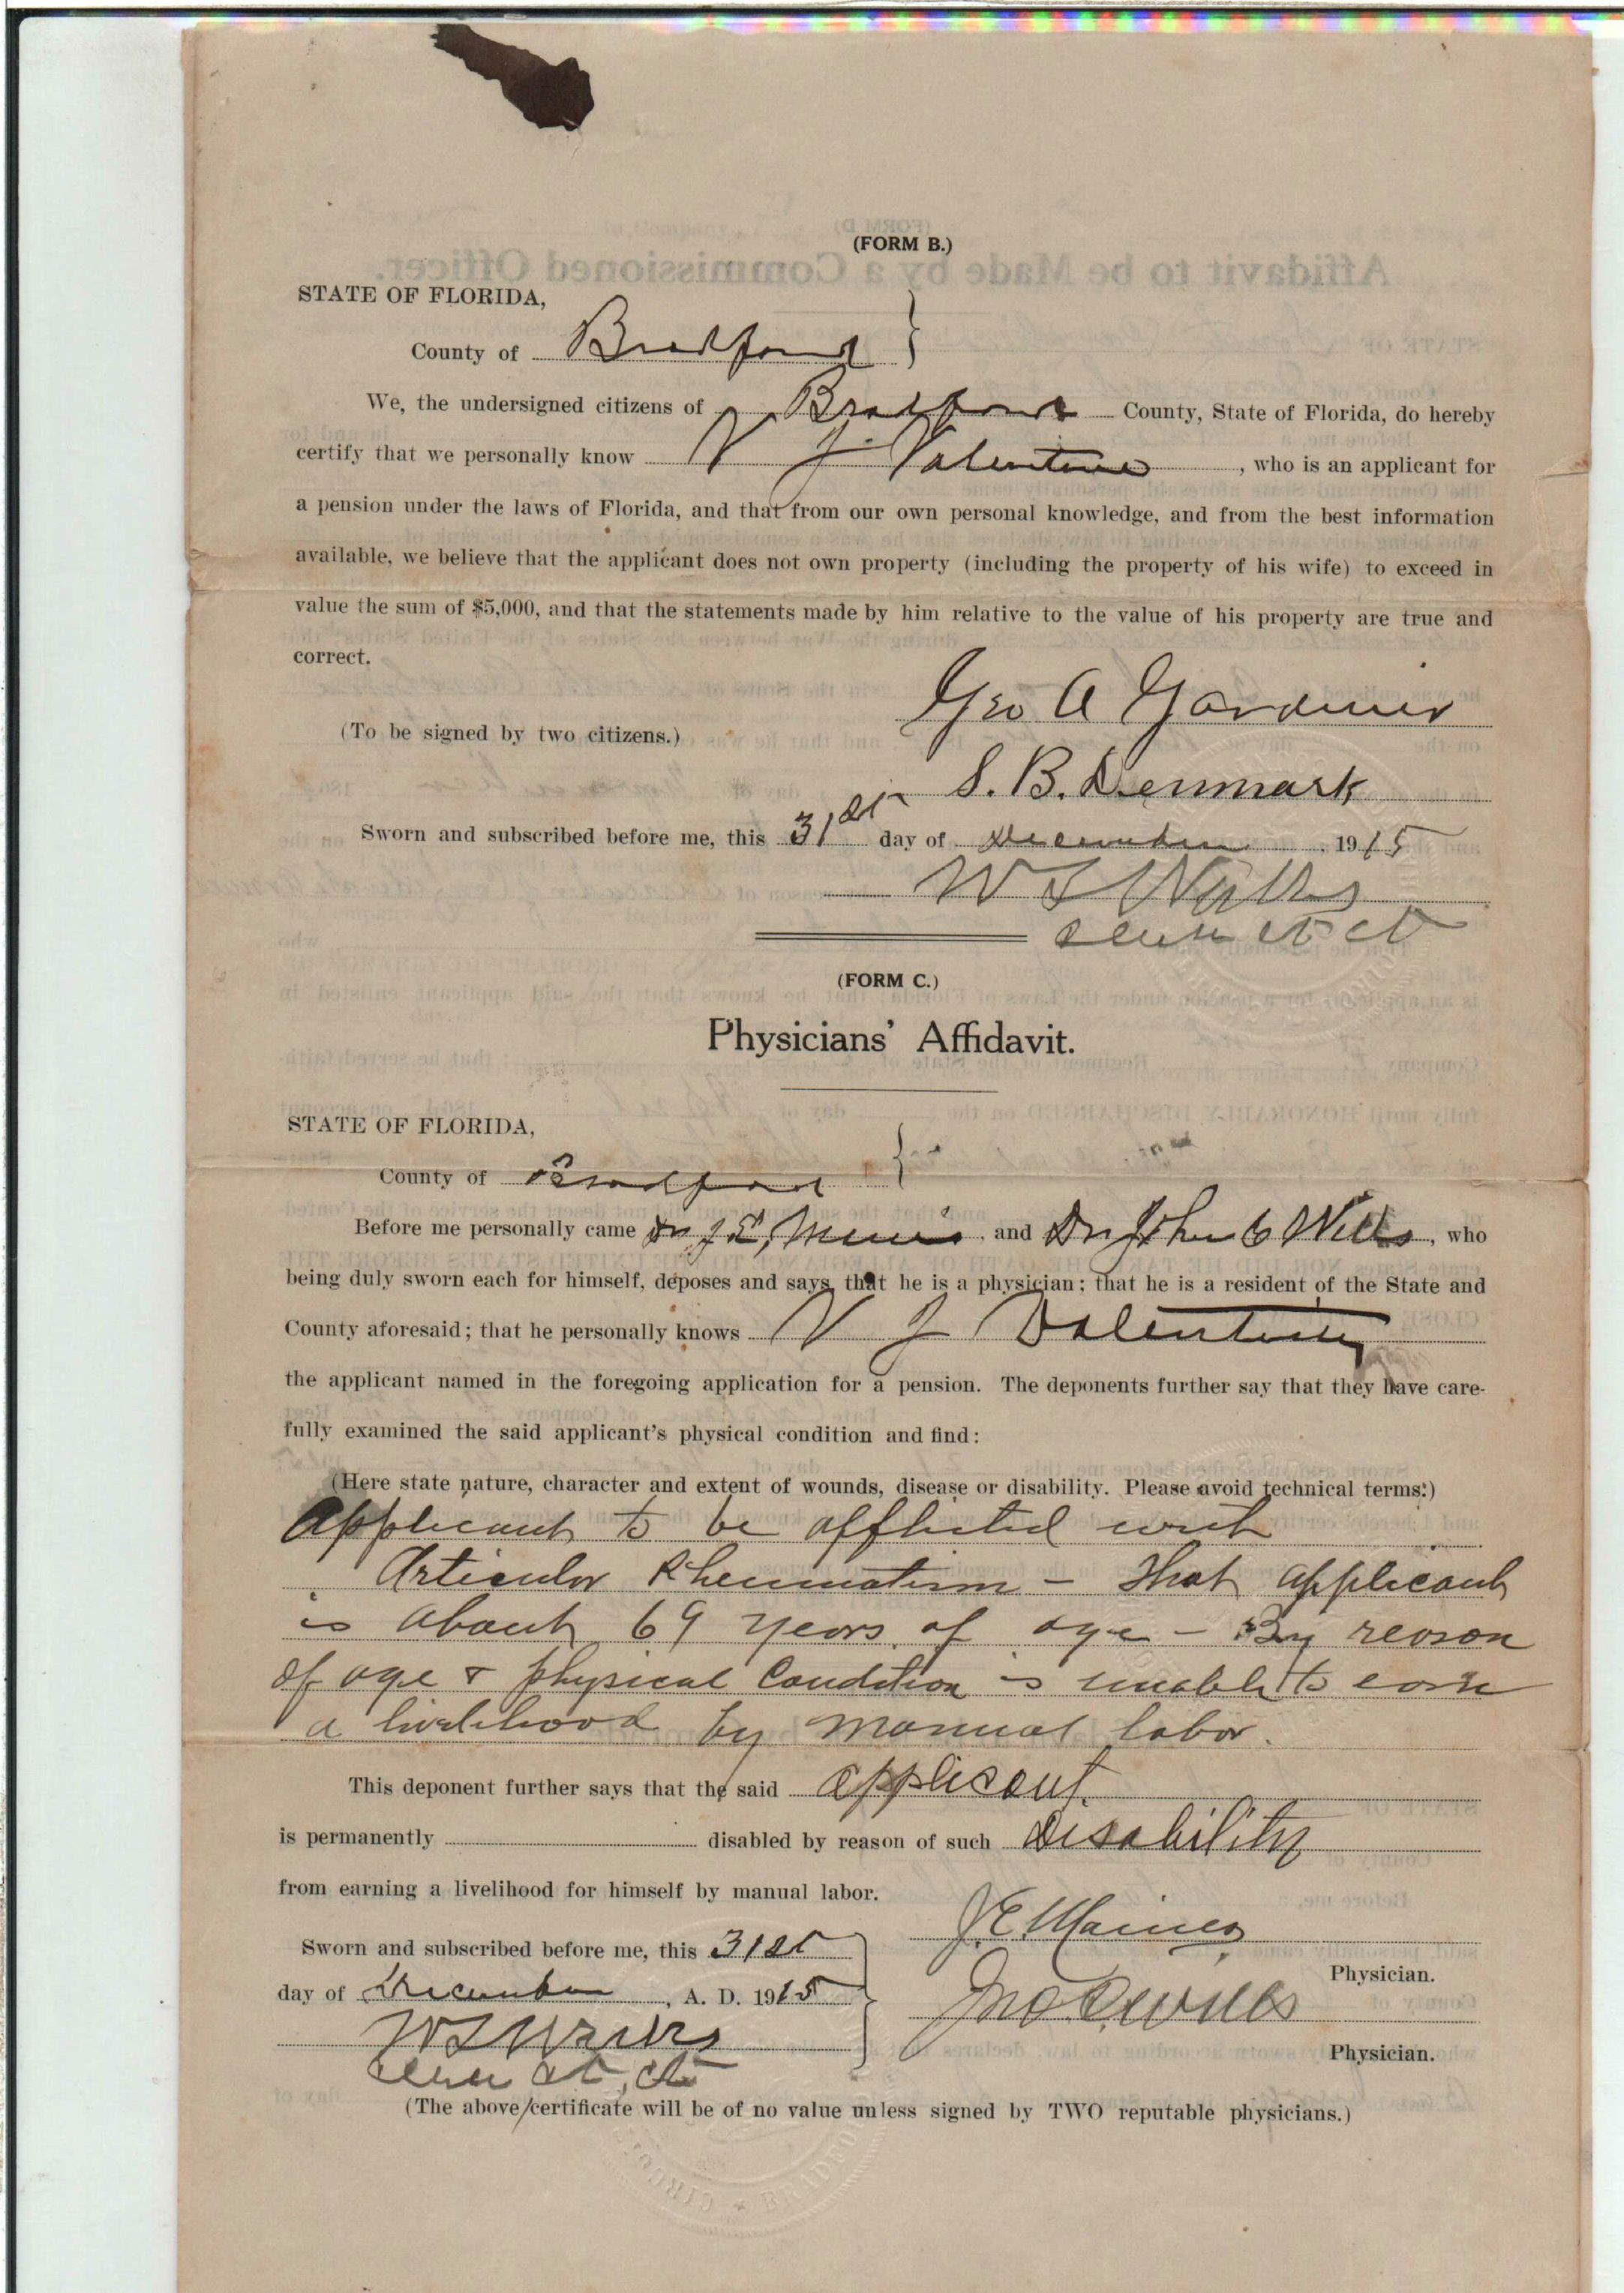 (FORM B.)
STATE OF FLORIDA,
County of Bradford
We, the undersigned citizens of Bradford County, State of Florida, do hereby
certify that we personally know V J Valentine, who is an applicant for
a pension under the laws of Florida, and that from our own personal knowledge, and from the best information
available, we believe that the applicant does not own property (including the property of his wife) to exceed in
value the sum of $5,000, and that the statements made by him relative to the value of his property are true and
correct.
Geo A Gardiner
(To be signed by two citizens.)
S. B. Denmark
Sworn and subscribed before me, this 31st day of December, 1915
W
Clerk Ct Ct
(FORM C.)
Physicians' Affidavit.
STATE OF FLORIDA,
County of Bradford
Before me personally came Dr J. E. and Dr John C Wills, who
being duly sworn each for himself, deposes and says, that he is a physician; that he is a resident of the State and
County aforesaid; that he personally knows V J Valentine
the applicant named in the foregoing application for a pension. The deponents further say that they have care-
fully examined the said applicant's physical condition and find:
(Here state nature, character and extent of wounds, disease or disability. Please avoid technical terms.)
Applicant to be afflicted with
Articular Rheumatism - That applicant
is about 69 years of age - By reason
of age & physical Condition is unable to earn
a livelihood by manual labor.
This deponent further says that the said applicant
is permanently disabled by reason of such Disability
from earning a livelihood for himself by manual labor.
J E Maines
Sworn and subscribed before me, this 31st
Physician.
day of December, A. D. 1915
Jno C. Wills
Physician.
Clerk Ct, Ct
(The above certificate will be of no value unless signed by TWO reputable physicians.)